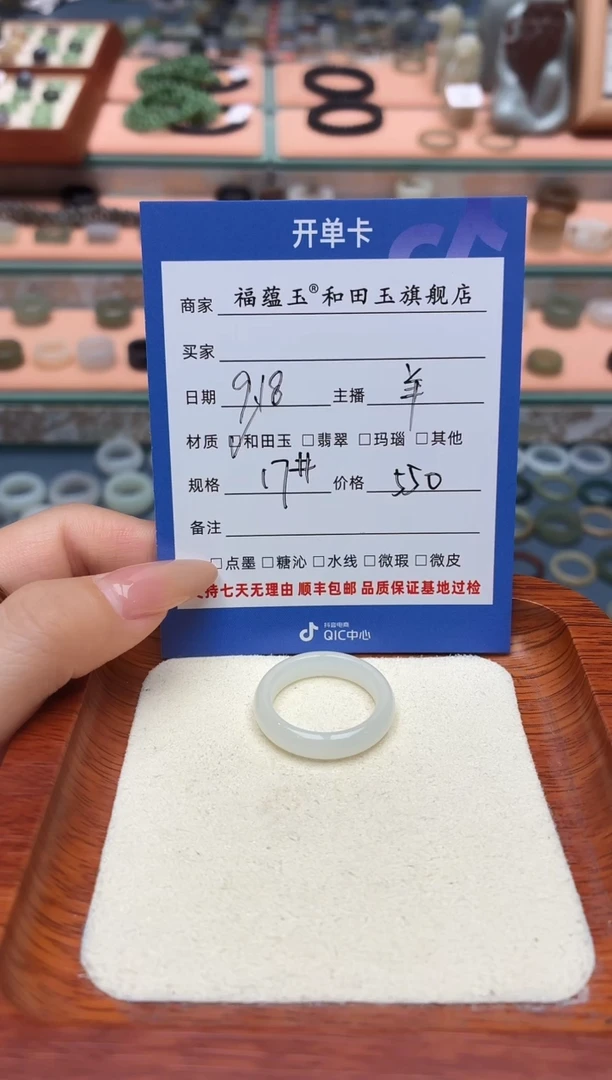 开单卡
商家 福蕴玉®和田玉旗舰店
买家
日期 9.18 主播 羊
材质 ☑和田玉 □翡翠 □玛瑙 □其他
规格 17# 价格 550
备注
□点墨 □糖沁 □水线 □微瑕 □微皮
持七天无理由 顺丰包邮 品质保证基地过检
抖音电商
QIC中心